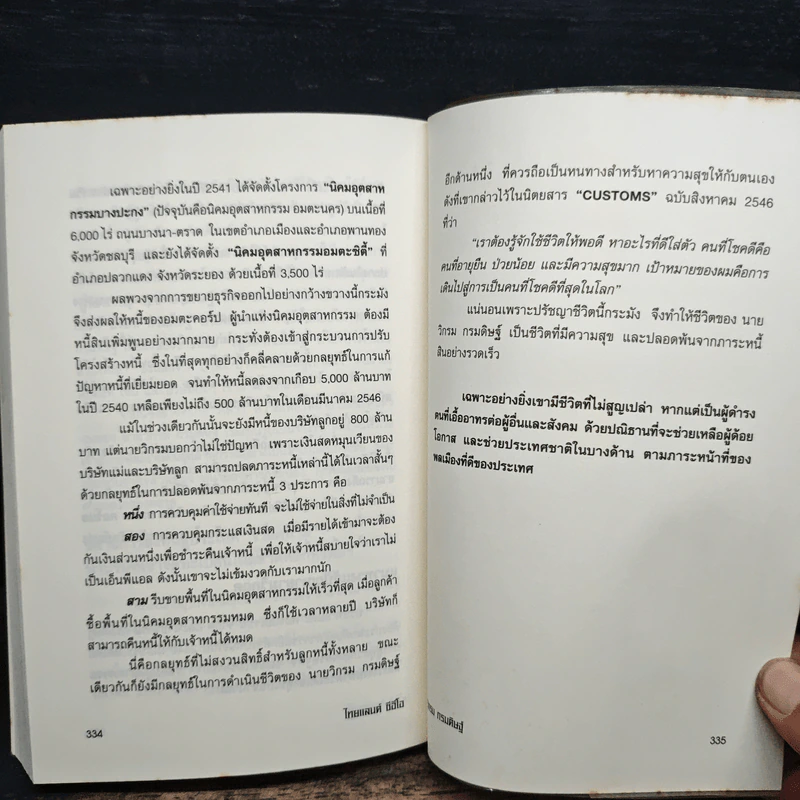 เฉพาะอย่างยิ่งในปี 2541 ได้จัดตั้งโครงการ “นิคมอุตสาห
กรรมบางปะกง” (ปัจจุบันคือนิคมอุตสาหกรรม อมตะนคร) บนเนื้อที่
6,000 ไร่ ถนนบางนา-ตราด ในเขตอำเภอเมืองและอำเภอพานทอง
จังหวัดชลบุรี และยังได้จัดตั้ง “นิคมอุตสาหกรรมอมตะซิตี้” ที่
อำเภอปลวกแดง จังหวัดระยอง ด้วยเนื้อที่ 3,500 ไร่
ผลพวงจากการขยายธุรกิจออกไปอย่างกว้างขวางนี้กระมัง
จึงส่งผลให้หนี้ของอมตะคอร์ป ผู้นำแห่งนิคมอุตสาหกรรม ต้องมี
หนี้สินเพิ่มพูนอย่างมากมาย กระทั่งต้องเข้าสู่กระบวนการปรับ
โครงสร้างหนี้ ซึ่งในที่สุดทุกอย่างก็คลี่คลายด้วยกลยุทธ์ในการแก้
ปัญหาหนี้ที่เยี่ยมยอด จนทำให้หนี้ลดลงจากเกือบ 5,000 ล้านบาท
ในปี 2540 เหลือเพียงไม่ถึง 500 ล้านบาทในเดือนมีนาคม 2546
แม้ในช่วงเดียวกันนั้นจะยังมีหนี้ของบริษัทลูกอยู่ 800 ล้าน
บาท แต่นายวิกรมบอกว่าไม่ใช่ปัญหา เพราะเงินสดหมุนเวียนของ
บริษัทแม่และบริษัทลูก สามารถปลดภาระหนี้เหล่านี้ได้ในเวลาสั้นๆ
ด้วยกลยุทธ์ในการปลอดพ้นจากภาระหนี้ 3 ประการ คือ
หนึ่ง การควบคุมค่าใช้จ่ายทันที จะไม่ใช้จ่ายในสิ่งที่ไม่จำเป็น
สอง การควบคุมกระแสเงินสด เมื่อมีรายได้เข้ามาจะต้อง
กันเงินส่วนหนึ่งเพื่อชำระคืนเจ้าหนี้ เพื่อให้เจ้าหนี้สบายใจว่าเราไม่
เป็นเอ็นพีแอล ดังนั้นเขาจะไม่เข้มงวดกับเรามากนัก
สาม รีบขายพื้นที่ในนิคมอุตสาหกรรมให้เร็วที่สุด เมื่อลูกค้า
ซื้อพื้นที่ในนิคมอุตสาหกรรมหมด ซึ่งก็ใช้เวลาหลายปี บริษัทก็
สามารถคืนหนี้ให้กับเจ้าหนี้ได้หมด
นี่คือกลยุทธ์ที่ไม่สงวนสิทธิ์สำหรับลูกหนี้ทั้งหลาย ขณะ
เดียวกันก็ยังมีกลยุทธ์ในการดำเนินชีวิตของ นายวิกรม กรมดิษฐ์
ไทยแลนด์ ซีอีโอ
334
อีกด้านหนึ่ง ที่ควรถือเป็นหนทางสำหรับหาความสุขให้กับตนเอง
ดังที่เขากล่าวไว้ในนิตยสาร “CUSTOMS” ฉบับสิงหาคม 2546
ที่ว่า
“เราต้องรู้จักใช้ชีวิตให้พอดี หาอะไรที่ดีใส่ตัว คนที่โชคดีคือ
คนที่อายุยืน ป่วยน้อย และมีความสุขมาก เป้าหมายของผมคือการ
เดินไปสู่การเป็นคนที่โชคดีที่สุดในโลก”
แน่นอนเพราะปรัชญาชีวิตนี้กระมัง จึงทำให้ชีวิตของ นาย
วิกรม กรมดิษฐ์ เป็นชีวิตที่มีความสุข และปลอดพ้นจากภาระหนี้
สินอย่างรวดเร็ว
เฉพาะอย่างยิ่งเขามีชีวิตที่ไม่สูญเปล่า หากแต่เป็นผู้ดำรง
คนที่เอื้ออาทรต่อผู้อื่นและสังคม ด้วยปณิธานที่จะช่วยเหลือผู้ด้อย
โอกาส และช่วยประเทศชาติในบางด้าน ตามภาระหน้าที่ของ
พลเมืองที่ดีของประเทศ
กรมดิษฐ์
335